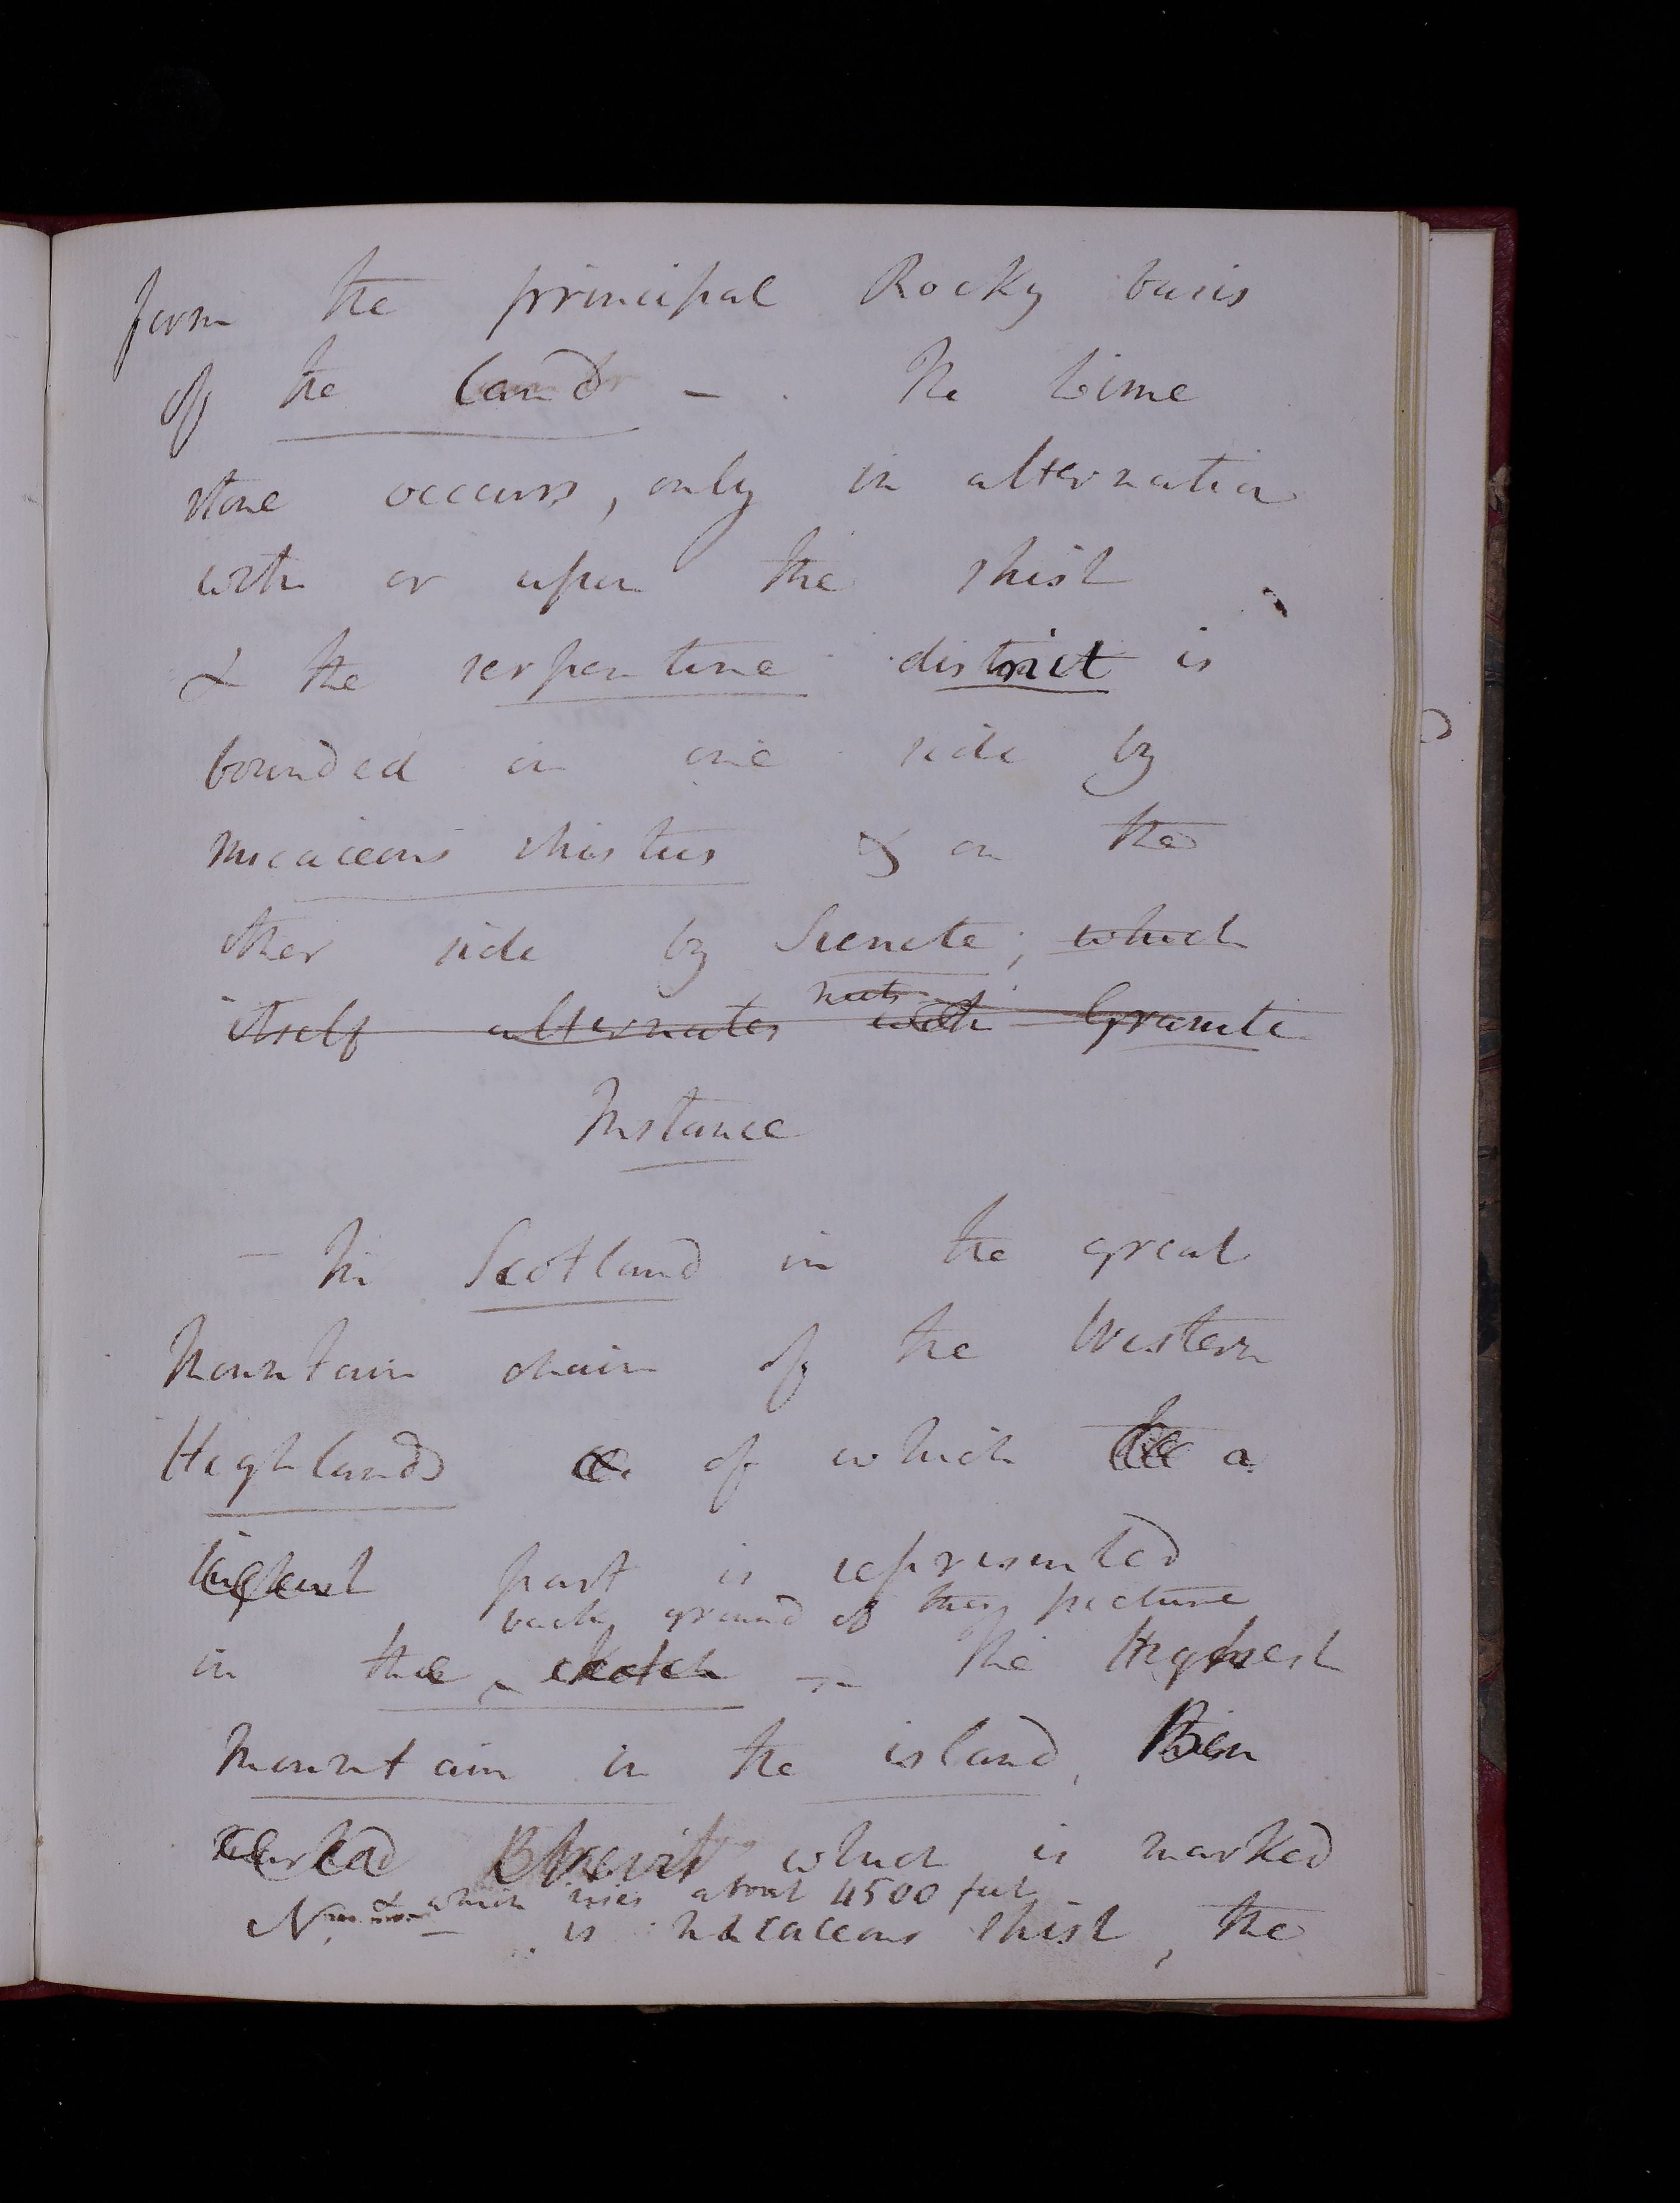 form the principal Rocky basis
of the land - . The Lime
stone occurs, only in alternation
with or upon the shist
& the serpentine district is
bounded on one side by
micaceous shistus & on the
other side by Sienite; which
itself alternates with Granite
Instance
- In Scotland in the great
Mountain chain of the Western
Highlands of which a
part is represented
back ground of this picture
in the sketch - The Highest
Mountain in the island, Ben
which is marked
& which rises about 4500 feet
N. - is micaceous shist, the